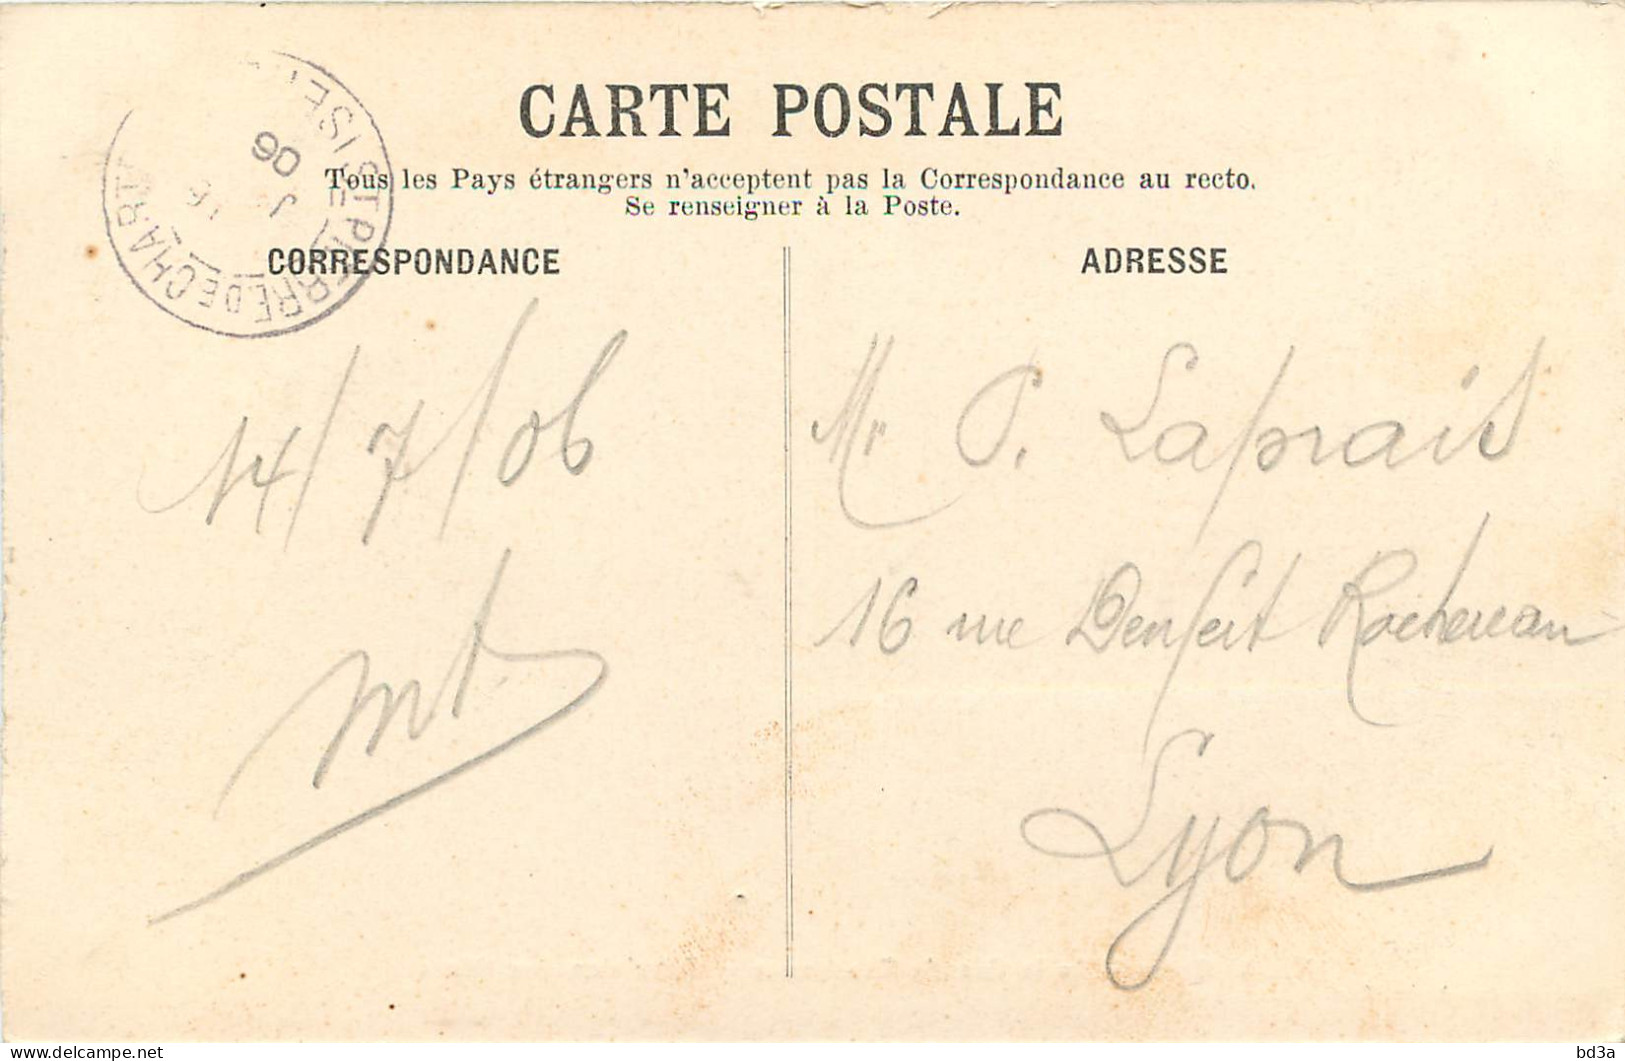 CARTE POSTALE
Tous les Pays étrangers n'acceptent pas la Correspondance au recto.
Se renseigner à la Poste.
CORRESPONDANCE
ADRESSE
ST PIERRE DE CHART
ISERE
06
14/7/06
Mr P. Laprais
16 rue Denfert Rochereau
Lyon
delcampe.net
bd3a